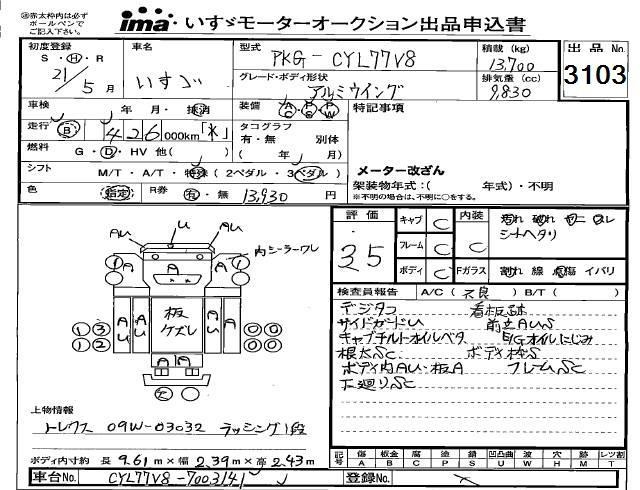 ※赤太枠内は必ず
ボールペンで
ご記入下さい。
ima・いすゞモーターオークション出品申込書
初度登録 S・H・R 21/5月
車名 いすゞ
型式 PKG-CYL77V8
積載(kg) 13,700
出品No. 3103
グレード・ボディ形状 アルミウイング
排気量(cc) 9,830
車検 年・月・抹消
装備 AC PS PW
特記事項
走行 B 426,000km「*」
タコグラフ 有・無 別体
燃料 G・D・HV 他( )
( 年 月)
メーター改ざん
シフト M/T・A/T・特殊(2ペダル・3ペダル)
架装物年式:( 年式)・不明
※不明の場合は、不明に○をする。
色 指定 R券 有・無 13,930 円
評価 3.5
キャブ C
フレーム C
ボディ C
内装 C
汚れ 破れ コゲ スレ
シートヘタリ
Fガラス 割れ 線 点傷 イバリ
検査員報告 A/C(不良) B/T( )
デジタコ 看板跡
サイドガードU 前立AUS
キャブチルトオイルベタ E/Gオイルにじみ
根太SC ボディ枠S
ボディ内AU・板A フレームSC
下廻りSC
AU U AU
内シーラーワレ
A A A
1 1
A U A U 板ケズレ A U A
1 3 0 0
1 2 0 0
A A
U
上物情報
トレクス 09W-03032 ラッシング1段
ボディ内寸約 長9.61m×幅2.39m×高2.43m
記号 傷 板金 腐 塗 損 凹凸曲 波 穴 跡 レツ割
A B C P S U W H M T
車台No. CYL77V8-7003141
登録No.